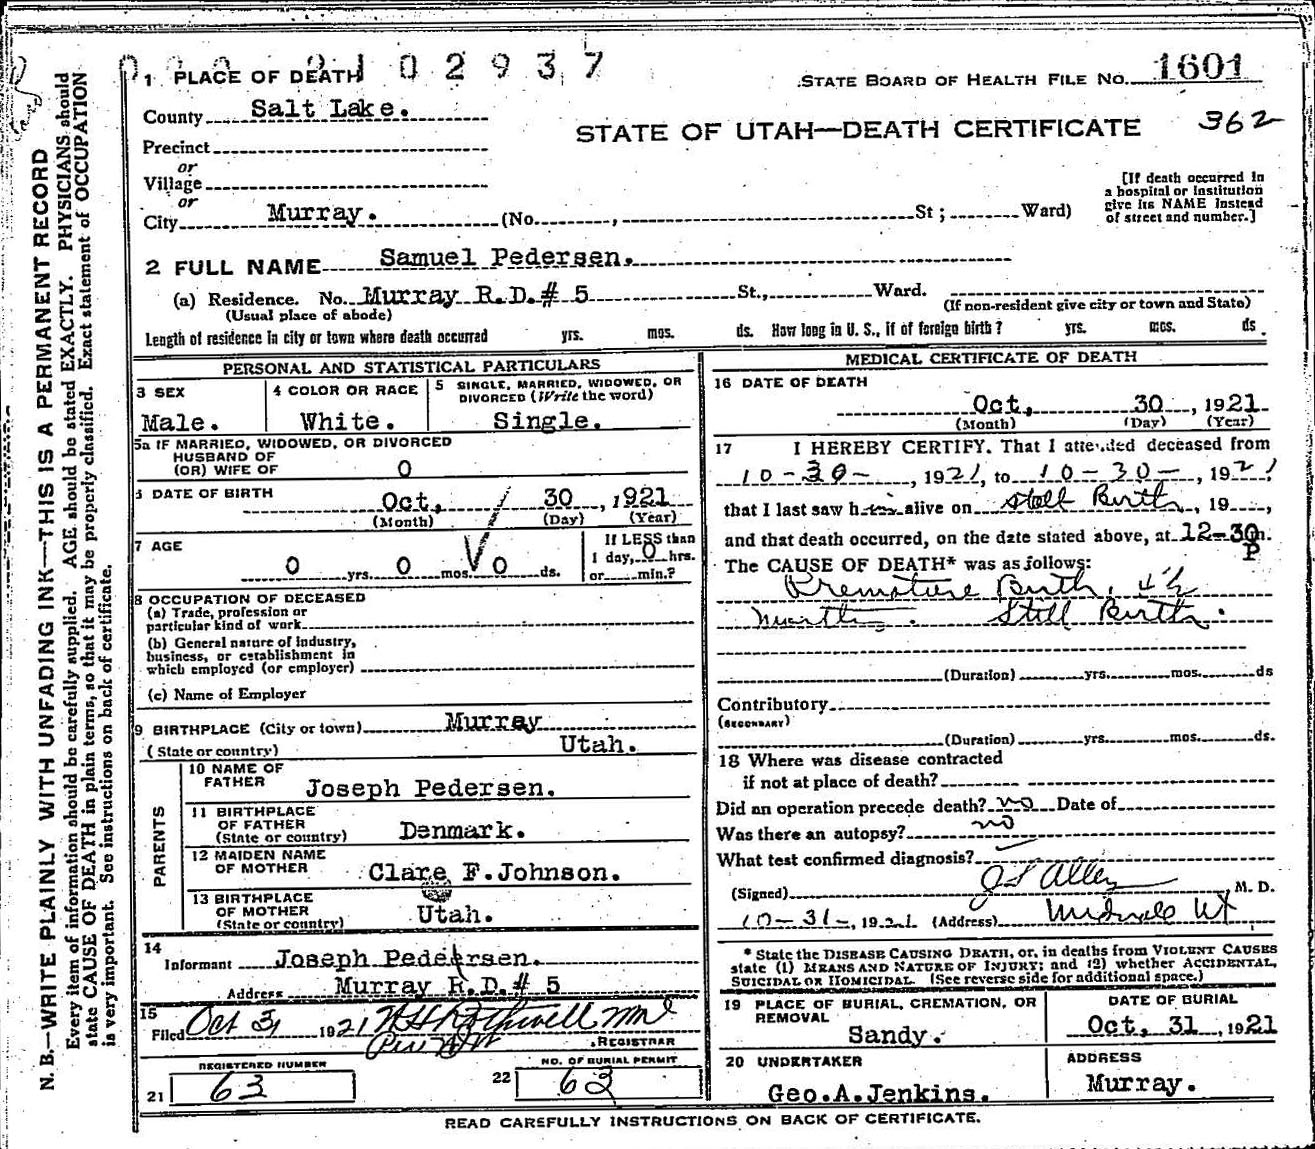 N. B.—WRITE PLAINLY WITH UNFADING INK—THIS IS A PERMANENT RECORD
Every item of information should be carefully supplied. AGE should be stated EXACTLY. PHYSICIANS should
state CAUSE OF DEATH in plain terms, so that it may be properly classified. Exact statement of OCCUPATION
is very important. See instructions on back of certificate.
1 PLACE OF DEATH 102937
STATE BOARD OF HEALTH FILE NO. 1601
County Salt Lake.
STATE OF UTAH—DEATH CERTIFICATE 362
Precinct
or
Village
or
City Murray. (No. , St ; Ward)
[If death occurred in
a hospital or institution
give its NAME instead
of street and number.]
2 FULL NAME Samuel Pedersen.
(a) Residence. No. Murray R.D.# 5 St., Ward.
(Usual place of abode) (If non-resident give city or town and State)
Length of residence in city or town where death occurred yrs. mos. ds. How long in U. S., if of foreign birth? yrs. mos. ds.
PERSONAL AND STATISTICAL PARTICULARS
3 SEX
Male.
4 COLOR OR RACE
White.
5 SINGLE, MARRIED, WIDOWED, OR
DIVORCED (Write the word)
Single.
5a IF MARRIED, WIDOWED, OR DIVORCED
HUSBAND OF
(OR) WIFE OF 0
6 DATE OF BIRTH
Oct, 30, 1921
(Month) (Day) (Year)
7 AGE
0 yrs. 0 mos. 0 ds.
If LESS than
1 day, 0 hrs.
or min.?
8 OCCUPATION OF DECEASED
(a) Trade, profession or
particular kind of work
(b) General nature of industry,
business, or establishment in
which employed (or employer)
(c) Name of Employer
9 BIRTHPLACE (City or town) Murray
(State or country) Utah.
PARENTS
10 NAME OF
FATHER Joseph Pedersen.
11 BIRTHPLACE
OF FATHER
(State or country) Denmark.
12 MAIDEN NAME
OF MOTHER Clare F.Johnson.
13 BIRTHPLACE
OF MOTHER
(State or country) Utah.
14
Informant Joseph Pedersen.
Address Murray R.D.# 5
15
Filed Oct 31 1921
REGISTRAR
REGISTERED NUMBER
21 63
NO. OF BURIAL PERMIT
22 63
MEDICAL CERTIFICATE OF DEATH
16 DATE OF DEATH
Oct, 30, 1921
(Month) (Day) (Year)
17 I HEREBY CERTIFY. That I attended deceased from
10-30-, 1921, to 10-30-, 1921
that I last saw him alive on Still Birth, 19 ,
and that death occurred, on the date stated above, at 12-30 m.
P
The CAUSE OF DEATH* was as follows:
Premature Birth, 4½
months. Still Birth.
(Duration) yrs. mos. ds
Contributory
(SECONDARY)
(Duration) yrs. mos. ds.
18 Where was disease contracted
if not at place of death?
Did an operation precede death? no Date of
Was there an autopsy? no
What test confirmed diagnosis?
(Signed) , M. D.
10-31-, 1921 (Address) Midvale Ut
* State the DISEASE CAUSING DEATH, or, in deaths from VIOLENT CAUSES
state (1) MEANS AND NATURE OF INJURY; and (2) whether ACCIDENTAL,
SUICIDAL OR HOMICIDAL. (See reverse side for additional space.)
19 PLACE OF BURIAL, CREMATION, OR
REMOVAL
Sandy.
DATE OF BURIAL
Oct, 31, 1921
20 UNDERTAKER
Geo.A.Jenkins.
ADDRESS
Murray.
READ CAREFULLY INSTRUCTIONS ON BACK OF CERTIFICATE.